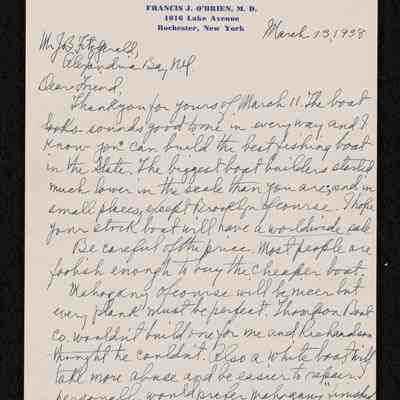 FRANCIS J. O'BRIEN, M. D.
1016 Lake Avenue
Rochester, New York
March 13, 1938
Mr J.B. Fitzgerald,
Alexandria Bay N.Y.
Dear Friend,
Thank you for yours of March 11. The boat
looks & sounds good to me in every way and I
know you can build the best fishing boat
in the State. The biggest boat builders started
much lower in the scale than you are, and in
small places, except Brooklyn of course. I hope
your stock boat will have a worldwide sale.
Be careful of the price. Most people are
foolish enough to buy the cheaper boat.
Mahogany of course will be nicer but
every plank must be perfect. Thompson Boat
Co. wouldn't build one for me and Richardson
thought he couldn't. Also a white boat will
take more abuse and be easier to repair.
personally would prefer mahogany finished